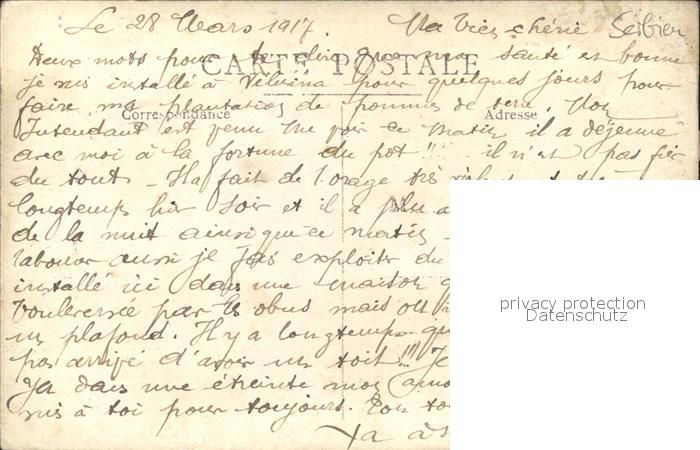 Le 28 Mars 1917. Ma Vies chérie Serbien
Deux mots pour te dire que ma santé est bonne
CARTE POSTALE
je suis installé à Velusina pour quelques jours pour
faire ma plantation de pommes de terre. Mon
Correspondance Adresse
Intendant est venu me voir ce matin il a déjeuné
avec moi à la fortune du pot!! il n'est pas fier
du tout - Il a fait de l'orage très
longtemps hier soir et il a plu
de la nuit ainsi que ce matin
labourer aussi je fais exploiter du
installé ici dans une maison
bouleversée par les obus mais où
un plafond. Il y a longtemps
pas arrivé d'avoir un toit!!! Je
dans une étreinte mon
suis à toi pour toujours. Ton
privacy protection
Datenschutz